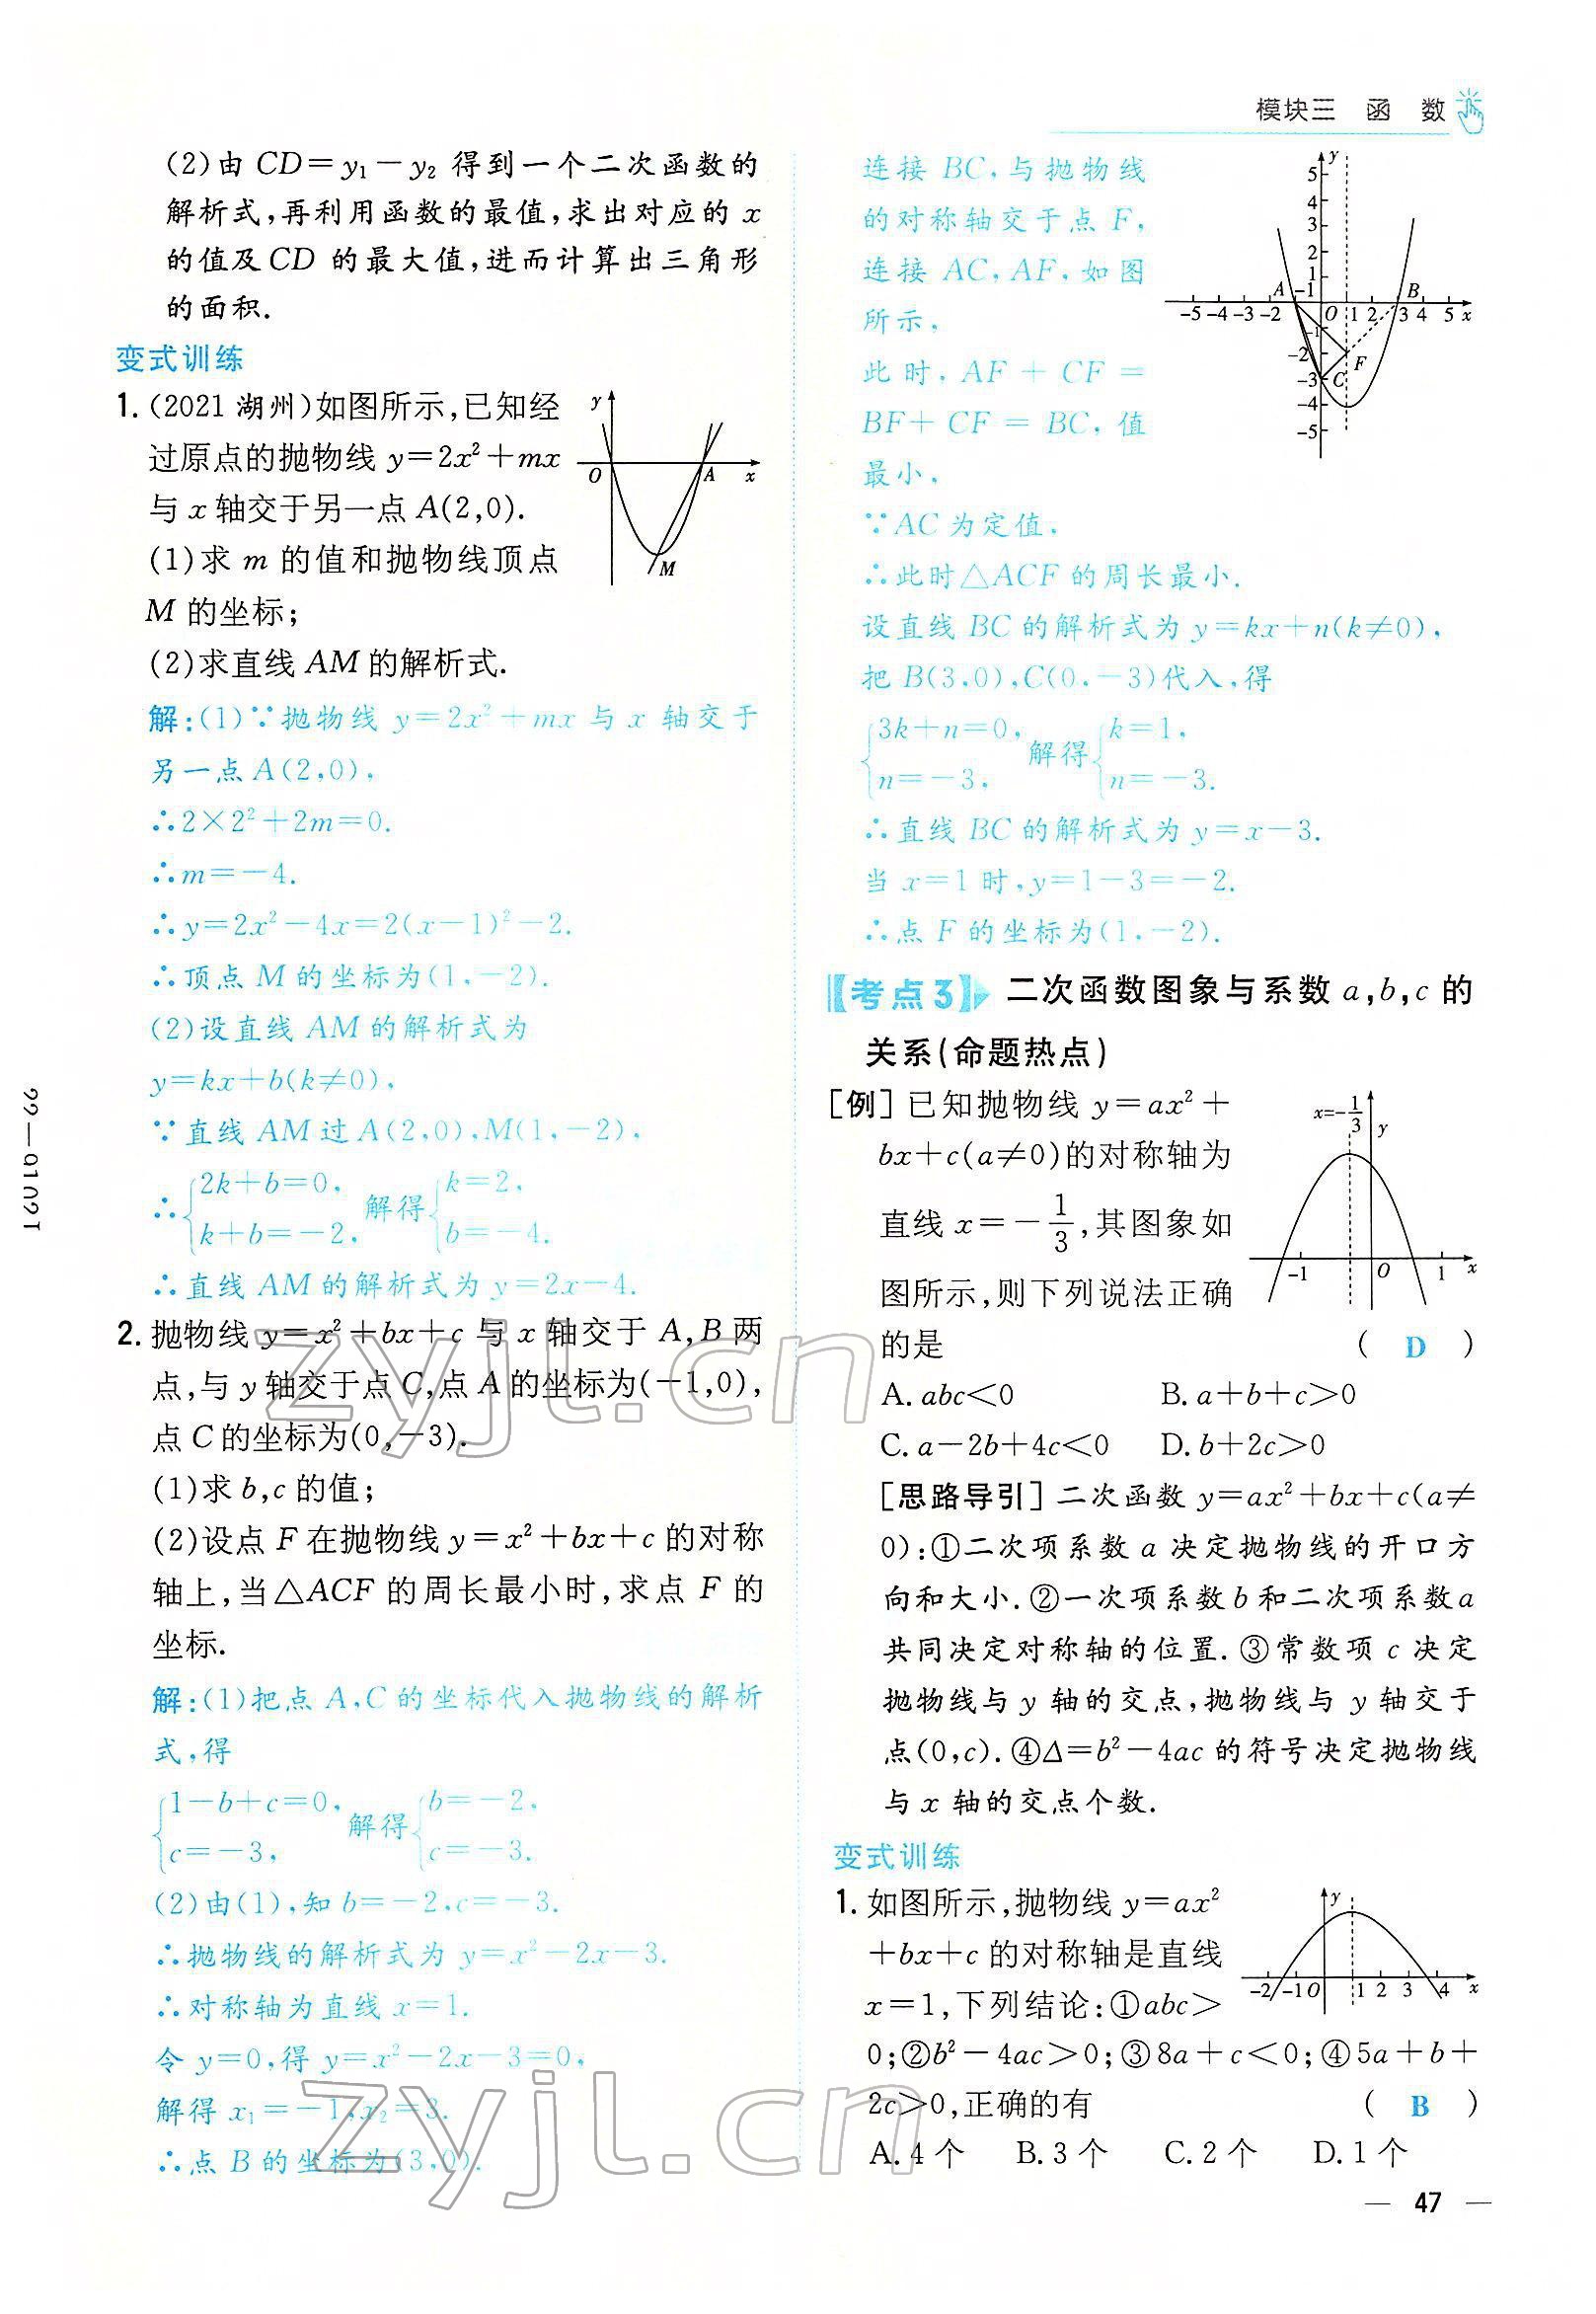 模块三 函 数
(2)由 CD=y₁-y₂ 得到一个二次函数的
解析式,再利用函数的最值,求出对应的 x
的值及CD 的最大值,进而计算出三角形
的面积.
变式训练
1.(2021 湖州)如图所示,已知经
过原点的抛物线 y=2x²+mx
与 x 轴交于另一点 A(2,0).
(1)求 m 的值和抛物线顶点
M 的坐标;
(2)求直线 AM 的解析式.
y
O
A
x
M
解:(1)∵抛物线 y=2x²+mx 与 x 轴交于
另一点 A(2,0),
∴2×2²+2m=0.
∴m=-4.
∴y=2x²-4x=2(x-1)²-2.
∴顶点 M 的坐标为(1,-2).
(2)设直线 AM 的解析式为
y=kx+b(k≠0),
∵直线 AM 过 A(2,0),M(1,-2),
∴{2k+b=0, k+b=-2, 解得{k=2, b=-4.
∴直线 AM 的解析式为 y=2x-4.
2.抛物线 y=x²+bx+c 与 x 轴交于 A,B 两
点,与 y轴交于点 C,点 A的坐标为(-1,0),
点 C的坐标为(0,-3).
(1)求 b,c 的值;
(2)设点 F 在抛物线 y=x²+bx+c 的对称
轴上,当△ACF 的周长最小时,求点 F 的
坐标.
解:(1)把点 A,C 的坐标代入抛物线的解析
式,得
{1-b+c=0, c=-3, 解得{b=-2, c=-3.
(2)由(1),知 b=-2,c=-3.
∴抛物线的解析式为 y=x²-2x-3.
∴对称轴为直线 x=1.
令 y=0,得 y=x²-2x-3=0,
解得 x₁=-1,x₂=3.
∴点 B 的坐标为(3,0).
连接 BC,与抛物线
的对称轴交于点 F,
连接 AC,AF,如图
所示,
此时,AF+CF=
BF+CF=BC,值
最小,
y
5
4
3
2
1
A -1 B
-5-4-3-2 O 1 2 3 4 5 x
-1
-2 F
-3 C
-4
-5
∵AC 为定值,
∴此时△ACF 的周长最小.
设直线 BC 的解析式为 y=kx+n(k≠0),
把 B(3,0),C(0,-3)代入,得
{3k+n=0, n=-3, 解得{k=1, n=-3.
∴直线 BC 的解析式为 y=x-3.
当 x=1 时,y=1-3=-2.
∴点 F 的坐标为(1,-2).
【考点3】 二次函数图象与系数 a,b,c 的
关系(命题热点)
[例] 已知抛物线 y=ax²+
bx+c(a≠0)的对称轴为
直线 x=-1/3,其图象如
图所示,则下列说法正确
的是 ( D )
x=-1/3
y
-1 O 1 x
A. abc<0 B. a+b+c>0
C. a-2b+4c<0 D. b+2c>0
[思路导引] 二次函数 y=ax²+bx+c(a≠
0):①二次项系数 a 决定抛物线的开口方
向和大小.②一次项系数b和二次项系数a
共同决定对称轴的位置.③常数项 c 决定
抛物线与 y 轴的交点,抛物线与 y 轴交于
点(0,c).④Δ=b²-4ac 的符号决定抛物线
与 x 轴的交点个数.
变式训练
1. 如图所示,抛物线 y=ax²
+bx+c 的对称轴是直线
x=1,下列结论:①abc>
0;②b²-4ac>0;③8a+c<0;④5a+b+
2c>0,正确的有 ( B )
y
-2 -1 O 1 2 3 4 x
A. 4 个 B. 3 个 C. 2 个 D. 1 个
47
zyjl.cn
zyjl.cn